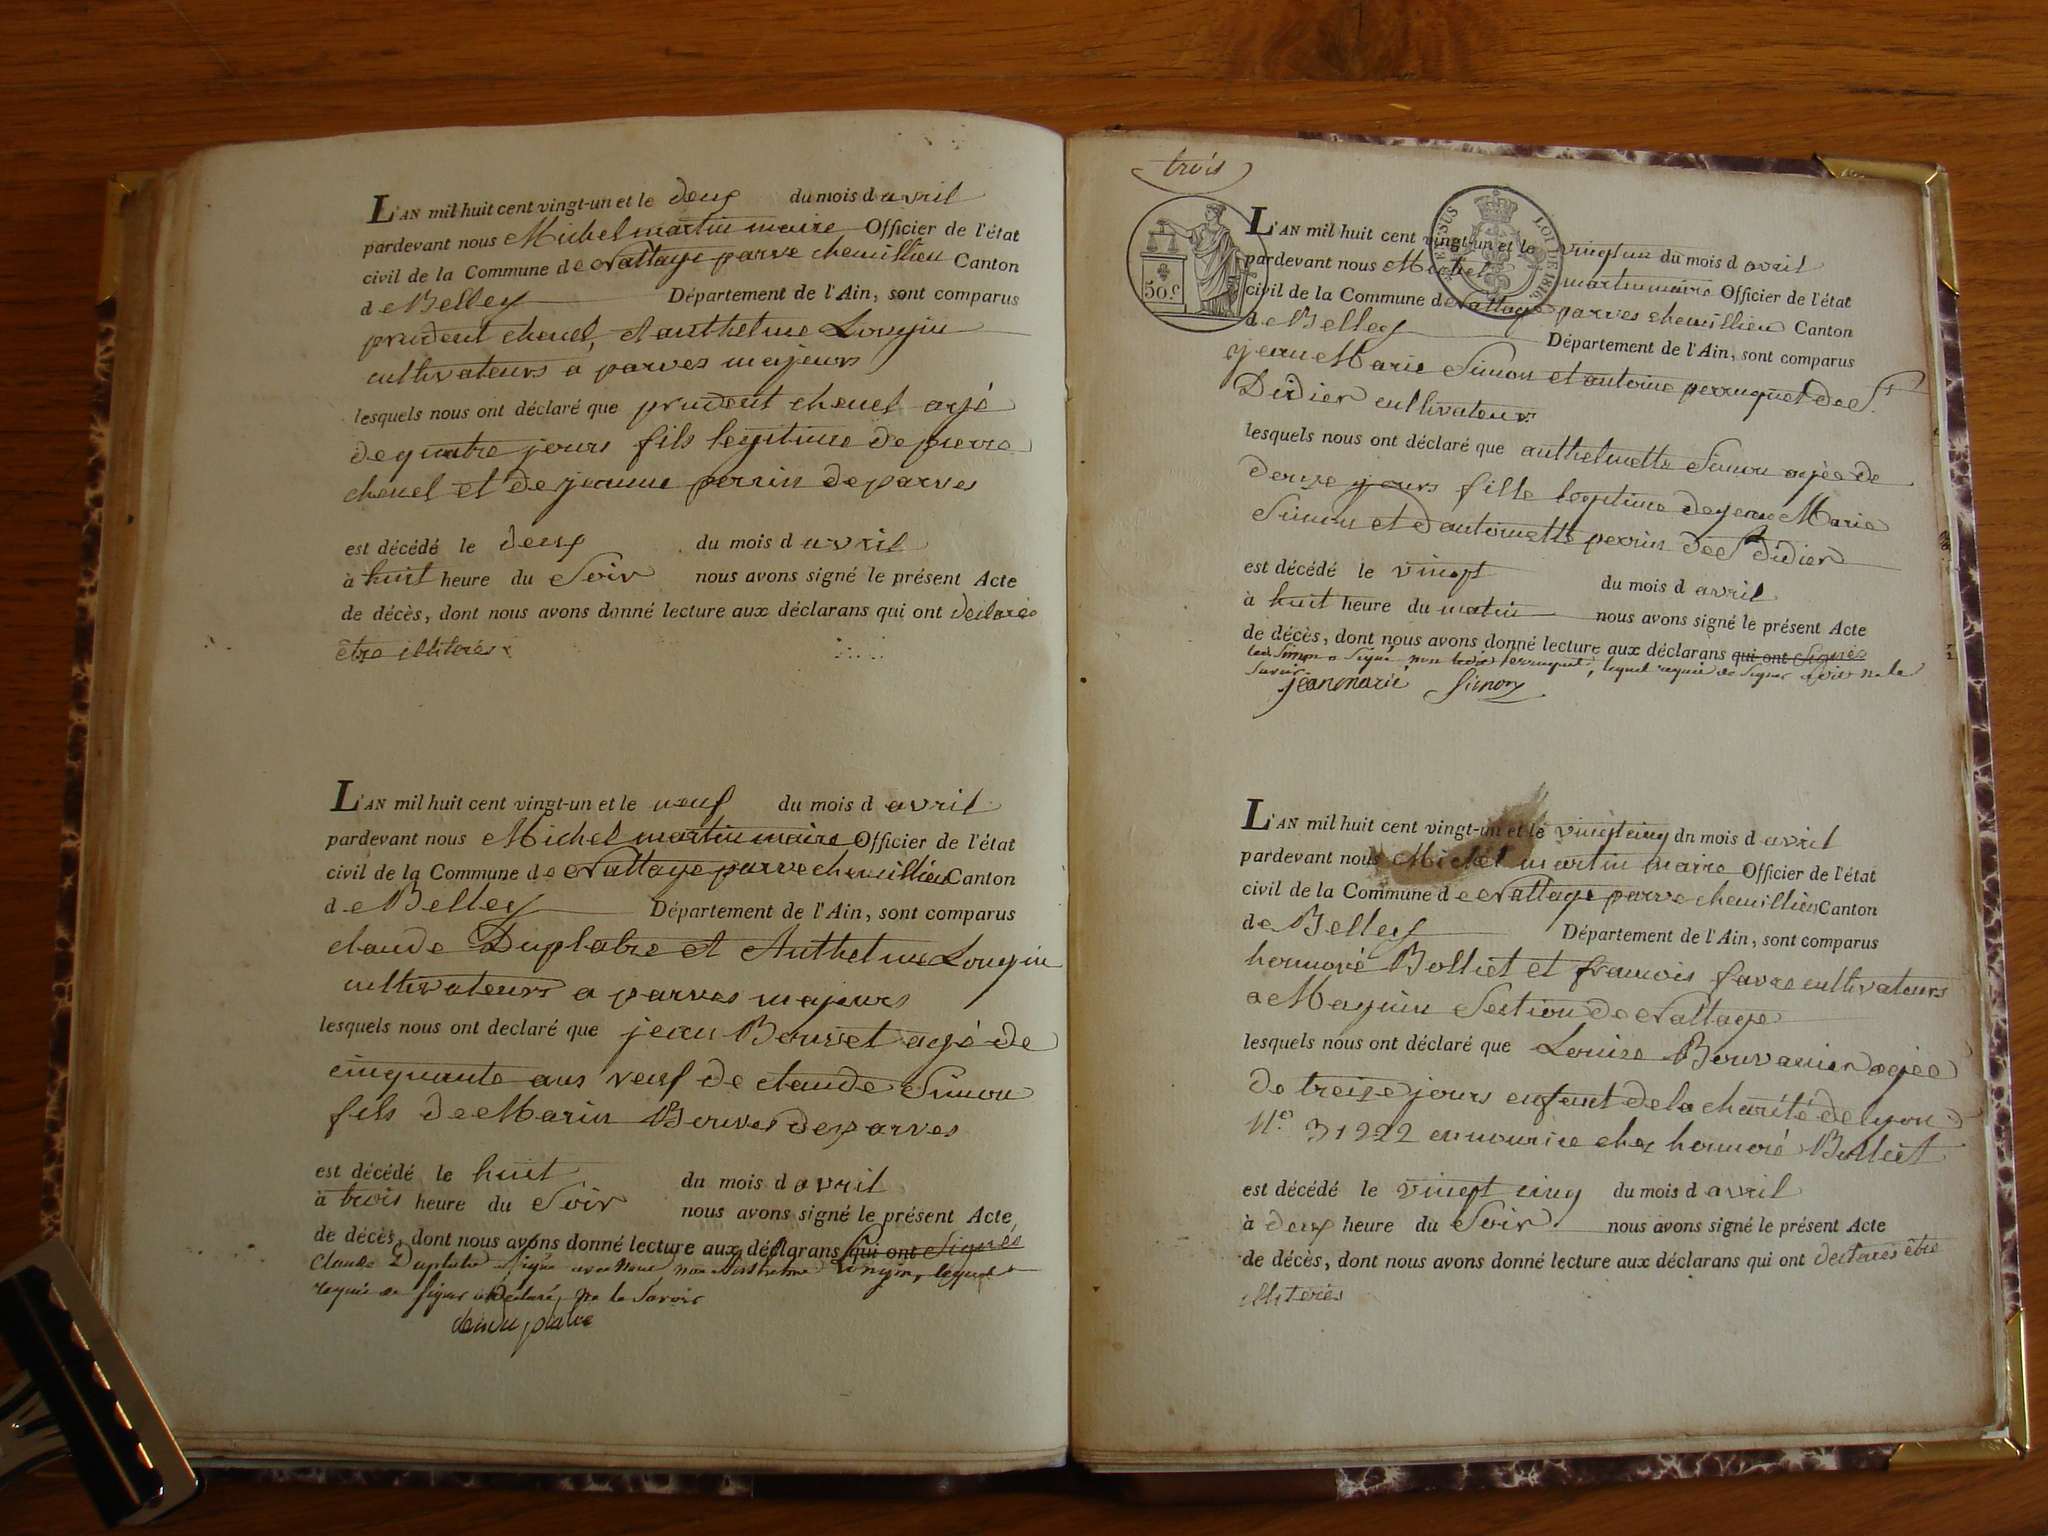 L'AN mil huit cent vingt-un et le deux du mois d avril
pardevant nous Michel martin maire Officier de l'état
civil de la Commune de Nattage parve chemillieu Canton
de Belley Département de l'Ain, sont comparus
prudent chenel, et anthelme Longin
cultivateurs a parves majeurs
lesquels nous ont déclaré que prudent chenel agé
de quatre jours fils legitime de pierre
chenel et de jeanne perrin de parves
est décédé le deux du mois d avril
à huit heure du Soir nous avons signé le présent Acte
de décès, dont nous avons donné lecture aux déclarans qui ont declarés
être illiterés
L'AN mil huit cent vingt-un et le neuf du mois d avril
pardevant nous Michel martin maire Officier de l'état
civil de la Commune de Nattage parve chemillieu Canton
de Belley Département de l'Ain, sont comparus
claude Duplatre et Anthelme Longin
cultivateurs a parves majeurs
lesquels nous ont declaré que jean Bouvet agé de
cinquante ans veuf de claude Simon
fils de Marin Bouvet de parves
est décédé le huit du mois d avril
à trois heure du Soir nous avons signé le présent Acte
de décès, dont nous avons donné lecture aux déclarans qui ont Signés
Claude Duplatre a Signé avec nous non Anthelme Longin, lequel
requis de signer a Déclaré ne le Savoir
trois
50 c.
LOI DE 1816
L'AN mil huit cent vingt-un et le vingt un du mois d avril
pardevant nous Michel martin maire Officier de l'état
civil de la Commune de Nattage parves chemillieu Canton
de Belley Département de l'Ain, sont comparus
jean Marie Simon et antoine perruquet de St
Didier cultivateurs
lesquels nous ont déclaré que anthelmette Simon agée de
douze jours fille legitime de jean Marie
Simon et d'antoinette perrin de St didier
est décédé le vingt du mois d avril
à huit heure du matin nous avons signé le présent Acte
de décès, dont nous avons donné lecture aux déclarans qui ont Signés
led. Simon a Signé non led. perruquet, lequel requis de Signer a dit ne le
Savoir
jean marie Simon
L'AN mil huit cent vingt-un et le vingt cinq du mois d avril
pardevant nous Michel martin maire Officier de l'état
civil de la Commune de Nattage parve chemillieu Canton
de Belley Département de l'Ain, sont comparus
honnoré Bolliet et francois favre cultivateurs
a Magnin Section de Nattage
lesquels nous ont déclaré que Louise Bouvanier agée
de treize jours enfant de la charité de lyon
N.o 31222 en nourice chez honnoré Bolliet
est décédé le vingt cinq du mois d avril
à deux heure du Soir nous avons signé le présent Acte
de décès, dont nous avons donné lecture aux déclarans qui ont declarés être
illiterés